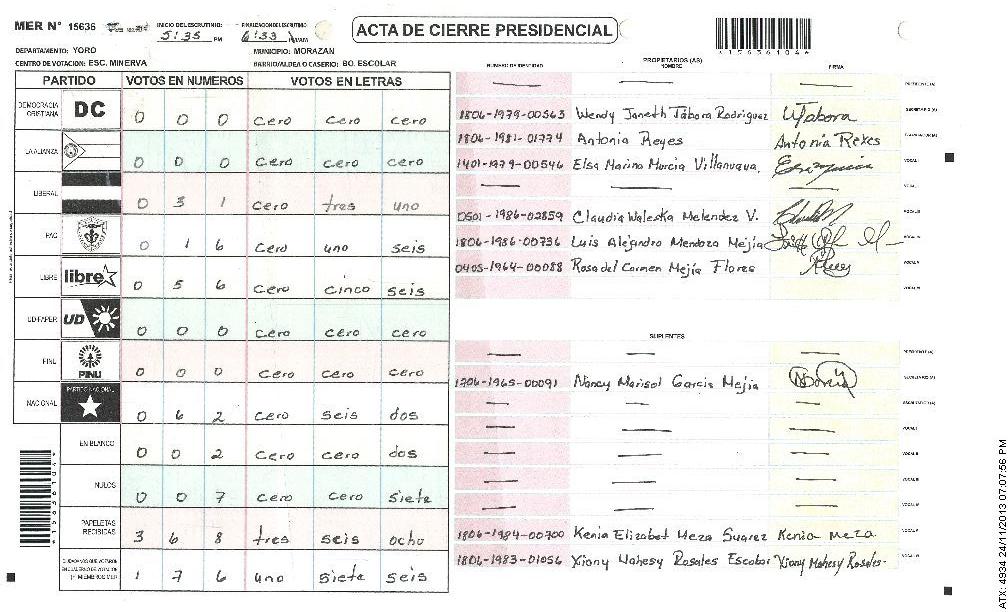 MER N° 15636
INICIO DEL ESCRUTINIO:
5:35 PM
FINALIZACION DEL ESCRUTINIO
6:33
ACTA DE CIERRE PRESIDENCIAL
15636104
DEPARTAMENTO: YORO
MUNICIPIO: MORAZAN
CENTRO DE VOTACION: ESC. MINERVA
BARRIO/ALDEA O CASERIO: BO. ESCOLAR
PARTIDO VOTOS EN NUMEROS VOTOS EN LETRAS
DEMOCRACIA CRISTIANA DC 0 0 0 cero cero cero
LA ALIANZA 0 0 0 cero cero cero
LIBERAL 0 3 1 cero tres uno
PAC 0 1 6 cero uno seis
LIBRE libre 0 5 6 cero cinco seis
UD/FAPER UD 0 0 0 cero cero cero
PINU PINU 0 0 0 cero cero cero
NACIONAL PARTIDO NACIONAL 0 6 2 cero seis dos
EN BLANCO 0 0 2 cero cero dos
NULOS 0 0 7 cero cero siete
PAPELETAS RECIBIDAS 3 6 8 tres seis ocho
CIUDADANOS QUE VOTARON 1 7 6 uno siete seis
PROPIETARIOS (AS)
NUMERO DE IDENTIDAD NOMBRE FIRMA
PRESIDENTE(A)
1806-1979-00563 Wendy Janeth Tábora Rodriguez WTabora SECRETARIO (A)
1806-1981-01774 Antonia Reyes Antonia Reyes ESCRUTADOR (A)
1401-1979-00546 Elsa Marina Murcia Villanueva. VOCAL I
0501-1986-02859 Claudia Waleska Melendez V.
1806-1986-00736 Luis Alejandro Mendoza Mejía
0405-1964-00088 Rosa del Carmen Mejía Flores
SUPLENTES
PRESIDENTE (A)
1706-1965-00091 Nancy Marisol Garcia Mejia SECRETARIO (A)
1806-1984-00700 Kenia Elizabet Meza Suarez Kenia Meza
1806-1983-01056 Xiony Mahesy Rosales Escobar Xiony Mahesy Rosales
ATX: 4934 24/11/2013 07:07:56 PM